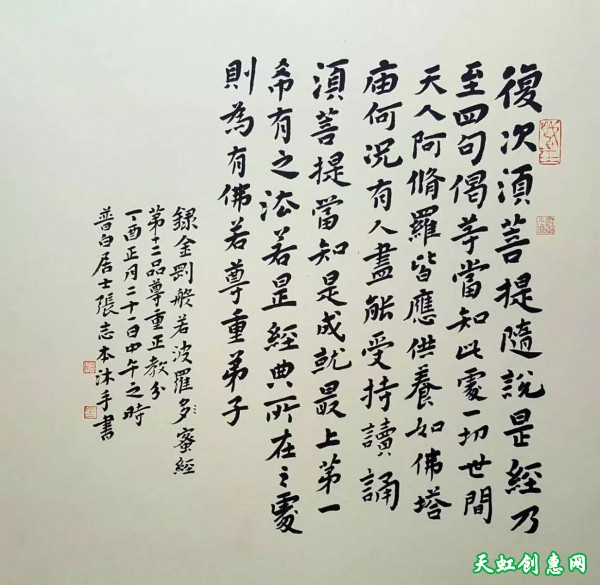 復次須菩提隨說是經乃
至四句偈等當知此處一切世間
天人阿脩羅皆應供養如佛塔
庙何況有人盡能受持讀誦
須菩提當知是成就最上第一
希有之法若是經典所在之處
則為有佛若尊重弟子
錄金剛般若波羅多蜜經
第十二品尊重正教分
丁酉正月二十一日中午之時
普白居士張志本沐手書
天虹创惠网